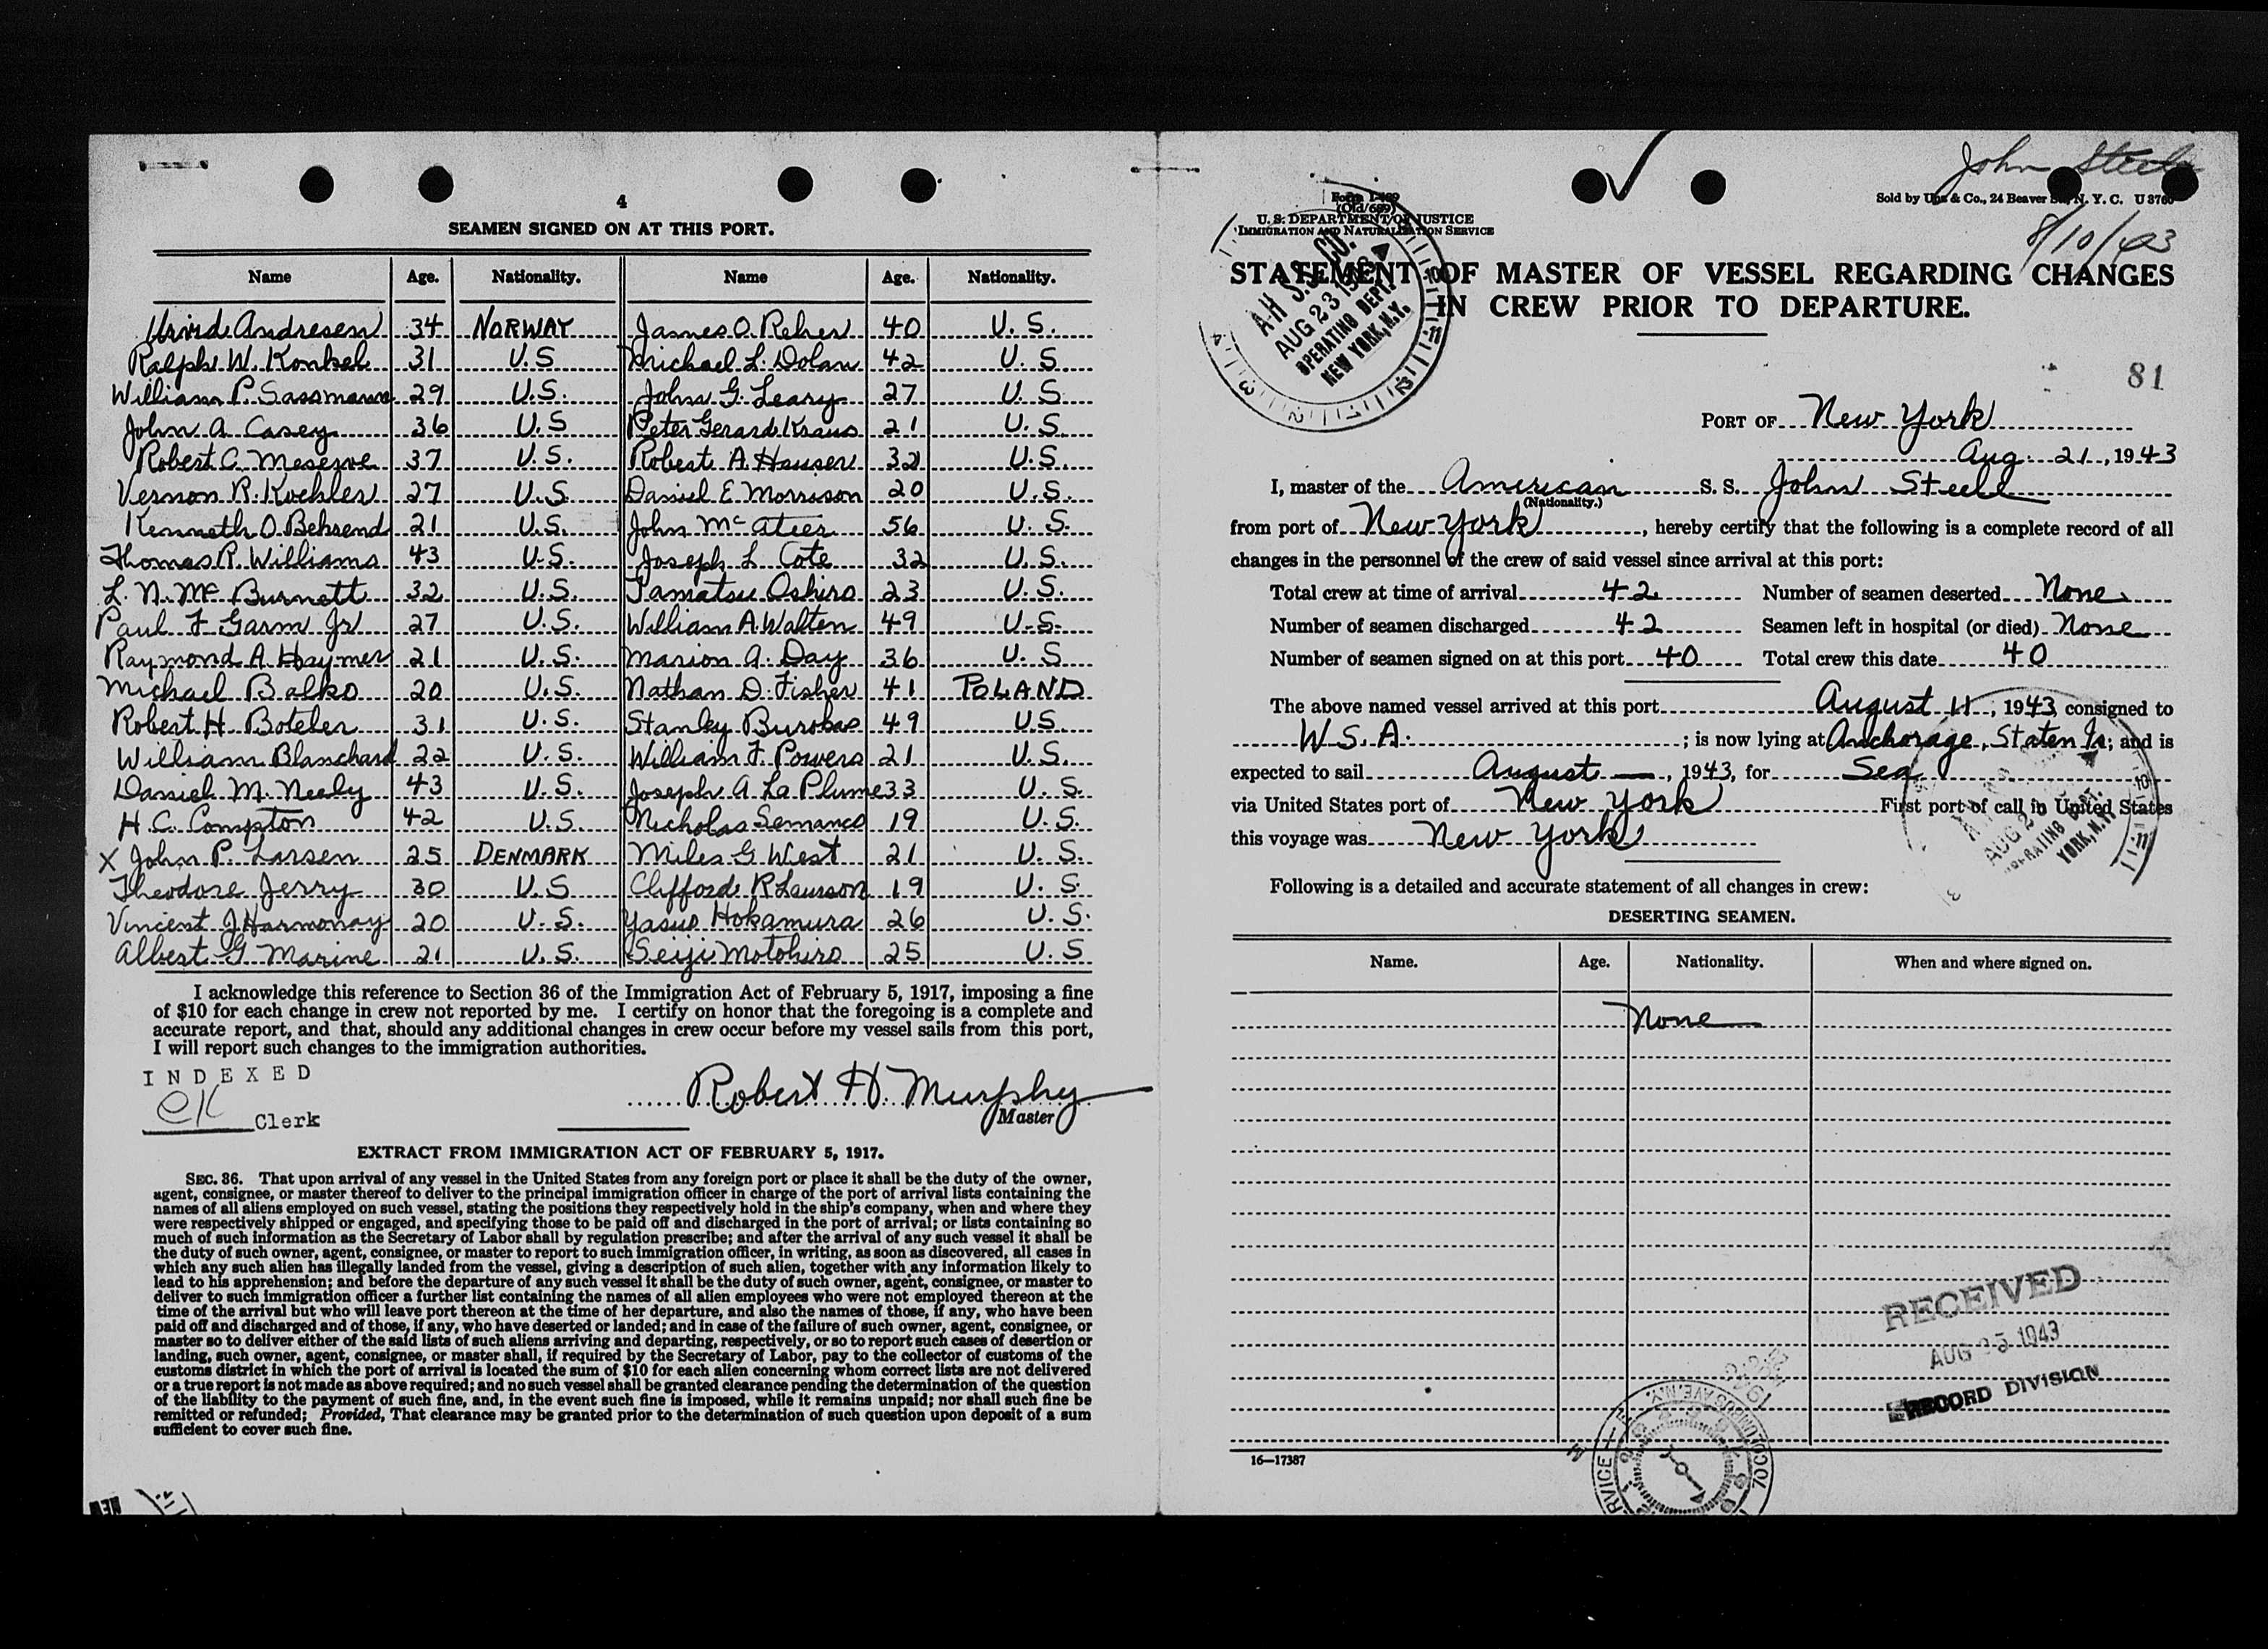 4
SEAMEN SIGNED ON AT THIS PORT.
Name Age. Nationality. Name Age. Nationality.
Andresen 34 NORWAY James O. Reher 40 U. S.
Ralph W. Konkel 31 U.S Michael L. Dolan 42 U. S
William P. Sassmann 29 U.S. John G. Leary 27 U. S
John A Casey 36 U.S Peter Gerard Kraus 21 U. S
Robert C. Meserve 37 U.S. Robert A. Hauser 32 U.S.
Vernon R. Koehler 27 U.S Daniel E Morrison 20 U.S.
Kenneth O. Behrend 21 U.S. John McAteer 56 U. S.
Thomas R. Williams 43 U.S. Joseph L Cote 32 U.S.
L. N. Mc Burnett 32 U.S. Tamatsu Oshiro 23 U.S.
Paul F Garm Jr 27 U.S. William A. Walten 49 U.S.
Raymond A. Haymer 21 U.S. Marion A. Day 36 U. S
Michael Balko 20 U.S. Nathan D. Fisher 41 POLAND
Robert H. Boteler 31 U.S. Stanley Burokas 49 U.S.
William Blanchard 22 U.S. William F. Powers 21 U.S.
Daniel M. Neely 43 U.S. Joseph A La Plume 33 U. S.
H. C. Compton 42 U.S. Nicholas Semanco 19 U.S.
X John P. Larsen 25 DENMARK Miles G West 21 U. S.
Theodore Jerry 30 U.S Clifford R Laurson 19 U. S.
Vincent J Harmonay 20 U. S. Yasuo Hokamura 26 U. S.
Albert G Marine 21 U. S. Seiji Motohiro 25 U. S
I acknowledge this reference to Section 36 of the Immigration Act of February 5, 1917, imposing a fine
of $10 for each change in crew not reported by me. I certify on honor that the foregoing is a complete and
accurate report, and that, should any additional changes in crew occur before my vessel sails from this port,
I will report such changes to the immigration authorities.
INDEXED
CK Clerk
Robert H. Murphy
Master
EXTRACT FROM IMMIGRATION ACT OF FEBRUARY 5, 1917.
SEC. 36. That upon arrival of any vessel in the United States from any foreign port or place it shall be the duty of the owner,
agent, consignee, or master thereof to deliver to the principal immigration officer in charge of the port of arrival lists containing the
names of all aliens employed on such vessel, stating the positions they respectively hold in the ship's company, when and where they
were respectively shipped or engaged, and specifying those to be paid off and discharged in the port of arrival; or lists containing so
much of such information as the Secretary of Labor shall by regulation prescribe; and after the arrival of any such vessel it shall be
the duty of such owner, agent, consignee, or master to report to such immigration officer, in writing, as soon as discovered, all cases in
which any such alien has illegally landed from the vessel, giving a description of such alien, together with any information likely to
lead to his apprehension; and before the departure of any such vessel it shall be the duty of such owner, agent, consignee, or master to
deliver to such immigration officer a further list containing the names of all alien employees who were not employed thereon at the
time of the arrival but who will leave port thereon at the time of her departure, and also the names of those, if any, who have been
paid off and discharged and of those, if any, who have deserted or landed; and in case of the failure of such owner, agent, consignee, or
master so to deliver either of the said lists of such aliens arriving and departing, respectively, or so to report such cases of desertion or
landing, such owner, agent, consignee, or master shall, if required by the Secretary of Labor, pay to the collector of customs of the
customs district in which the port of arrival is located the sum of $10 for each alien concerning whom correct lists are not delivered
or a true report is not made as above required; and no such vessel shall be granted clearance pending the determination of the question
of the liability to the payment of such fine, and, in the event such fine is imposed, while it remains unpaid; nor shall such fine be
remitted or refunded; Provided, That clearance may be granted prior to the determination of such question upon deposit of a sum
sufficient to cover such fine.
John Steele
8/10/43
Sold by & Co., 24 Beaver N. Y. C.
U. S. DEPARTMENT OF JUSTICE
IMMIGRATION AND NATURALIZATION SERVICE
A-H S.S. CO.
AUG 23
OPERATING DEPT.
NEW YORK, N.Y.
STATEMENT OF MASTER OF VESSEL REGARDING CHANGES
IN CREW PRIOR TO DEPARTURE.
81
PORT OF New York
Aug. 21, 1943
I, master of the American S. S. John Steele
(Nationality.)
from port of New York, hereby certify that the following is a complete record of all
changes in the personnel of the crew of said vessel since arrival at this port:
Total crew at time of arrival 42 Number of seamen deserted None
Number of seamen discharged 42 Seamen left in hospital (or died) None
Number of seamen signed on at this port 40 Total crew this date 40
The above named vessel arrived at this port August 11, 1943, consigned to
W.S.A. ; is now lying at Anchorage, Staten Is; and is
expected to sail August —, 1943, for Sea
via United States port of New York First port of call in United States
this voyage was New York
Following is a detailed and accurate statement of all changes in crew:
DESERTING SEAMEN.
Name. Age. Nationality. When and where signed on.
None
RECEIVED
AUG 1943
RECORD DIVISION
16—17387